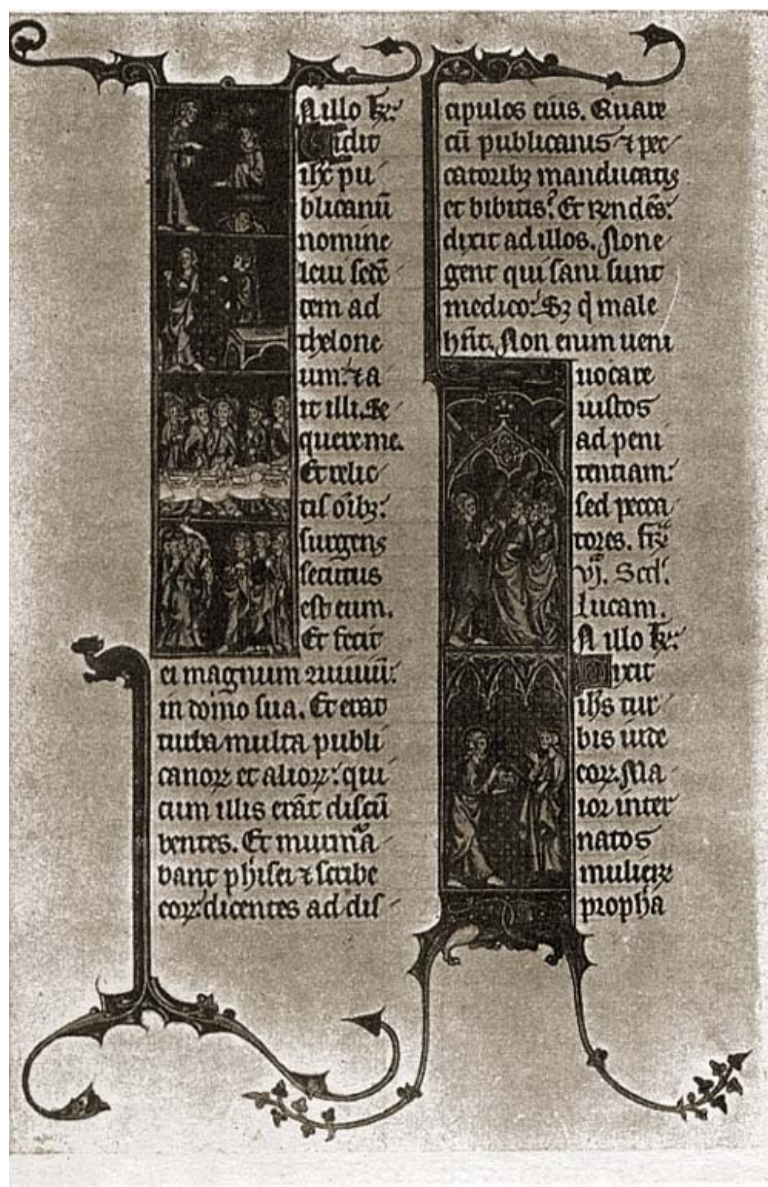 N illo tꝑe:
Vidit
ihc pu
blicanū
nomine
leui sedē
tem ad
thelone
um: ⁊ a
it illi. Se
quere me.
Et relic
tis oībꝫ:
surgens
secutus
est eum.
Et fecit
ei magnum ɔuiuiū:
in domo sua. Et erat
turba multa publi
canoꝝ et alioꝝ: qui
cum illis erāt discū
bentes. Et murmᵃa
bant phīsei ⁊ scribe
eoꝝ: dicentes ad dis
cipulos eius. Quare
cū publicanis ⁊ pec
catoribꝫ manducatis
et bibitis? Et rn̄dēs:
dixit ad illos. Non e
gent qui sani sunt
medico: Sꝫ q̇ male
hn̄t. Non enim ueni
uocare
iustos
ad peni
tentiam:
sed pecca
tores.
vj. Scd̄.
lucam.
N illo tꝑe:
Dixit
ihs tur
bis iude
oꝝ. Ma
ior inter
natos
mulieꝝ
proph̄a